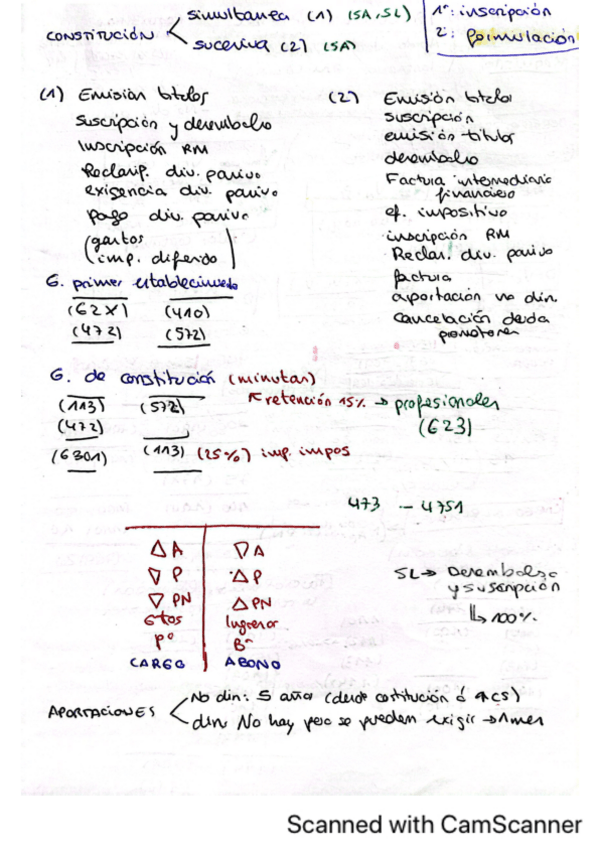 CONSTITUCIÓN
simultanea (1) (SA, SL)
sucesiva (2) (SA)
1º: inscripción
2: formulación
(1) Emisión títulos
Suscripción y desembolso
Inscripción RM
Reclasif. div. pasivo
exigencia div. pasivo
pago div. pasivo
(gastos
imp. diferido)
(2) Emisión títulos
suscripción
emisión títulos
desembolso
Factura intermediario
financiero
ef. impositivo
inscripción RM
Reclas. div. pasivo
factura
aportación no din.
cancelación deuda
promotores
G. primer establecimiento
(62X) (410)
(472) (572)
G. de constitución (minutas)
retención 15% → profesionales
(623)
(113) (572)
(472)
(6301) (113) (25%) imp. impos
473 - 4751
△ A ▽ A
▽ P △ P
▽ PN △ PN
Gtos Ingresos
Pº Bº
CARGO ABONO
SL → Desembolso
y suscripción
↳ 100%.
APORTACIONES
No din: 5 años (desde constitución ó
din: No hay pero se pueden exigir → 1 mes
Scanned with CamScanner